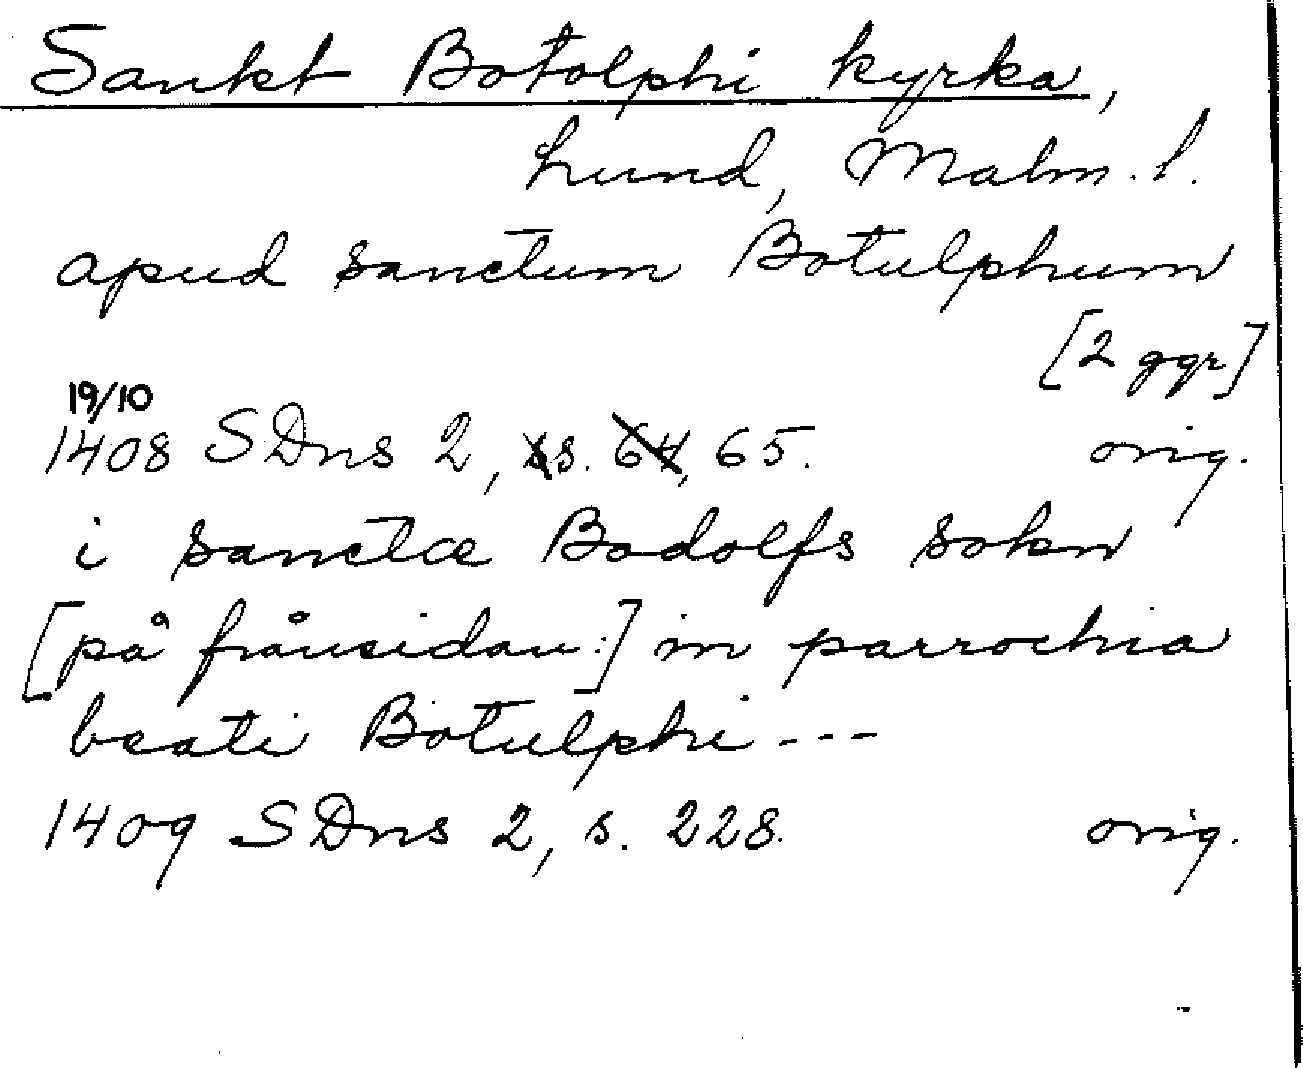 Sankt Botolphi kyrka,
Lund, Malm. l.
apud sanctum Botulphum
[2 ggr]
19/10
1408 SDns 2, s. 65. orig.
i sanctæ Bodolfs sokn
[på frånsidan:] in parrochia
beati Botulphi ---
1409 SDns 2, s. 228. orig.